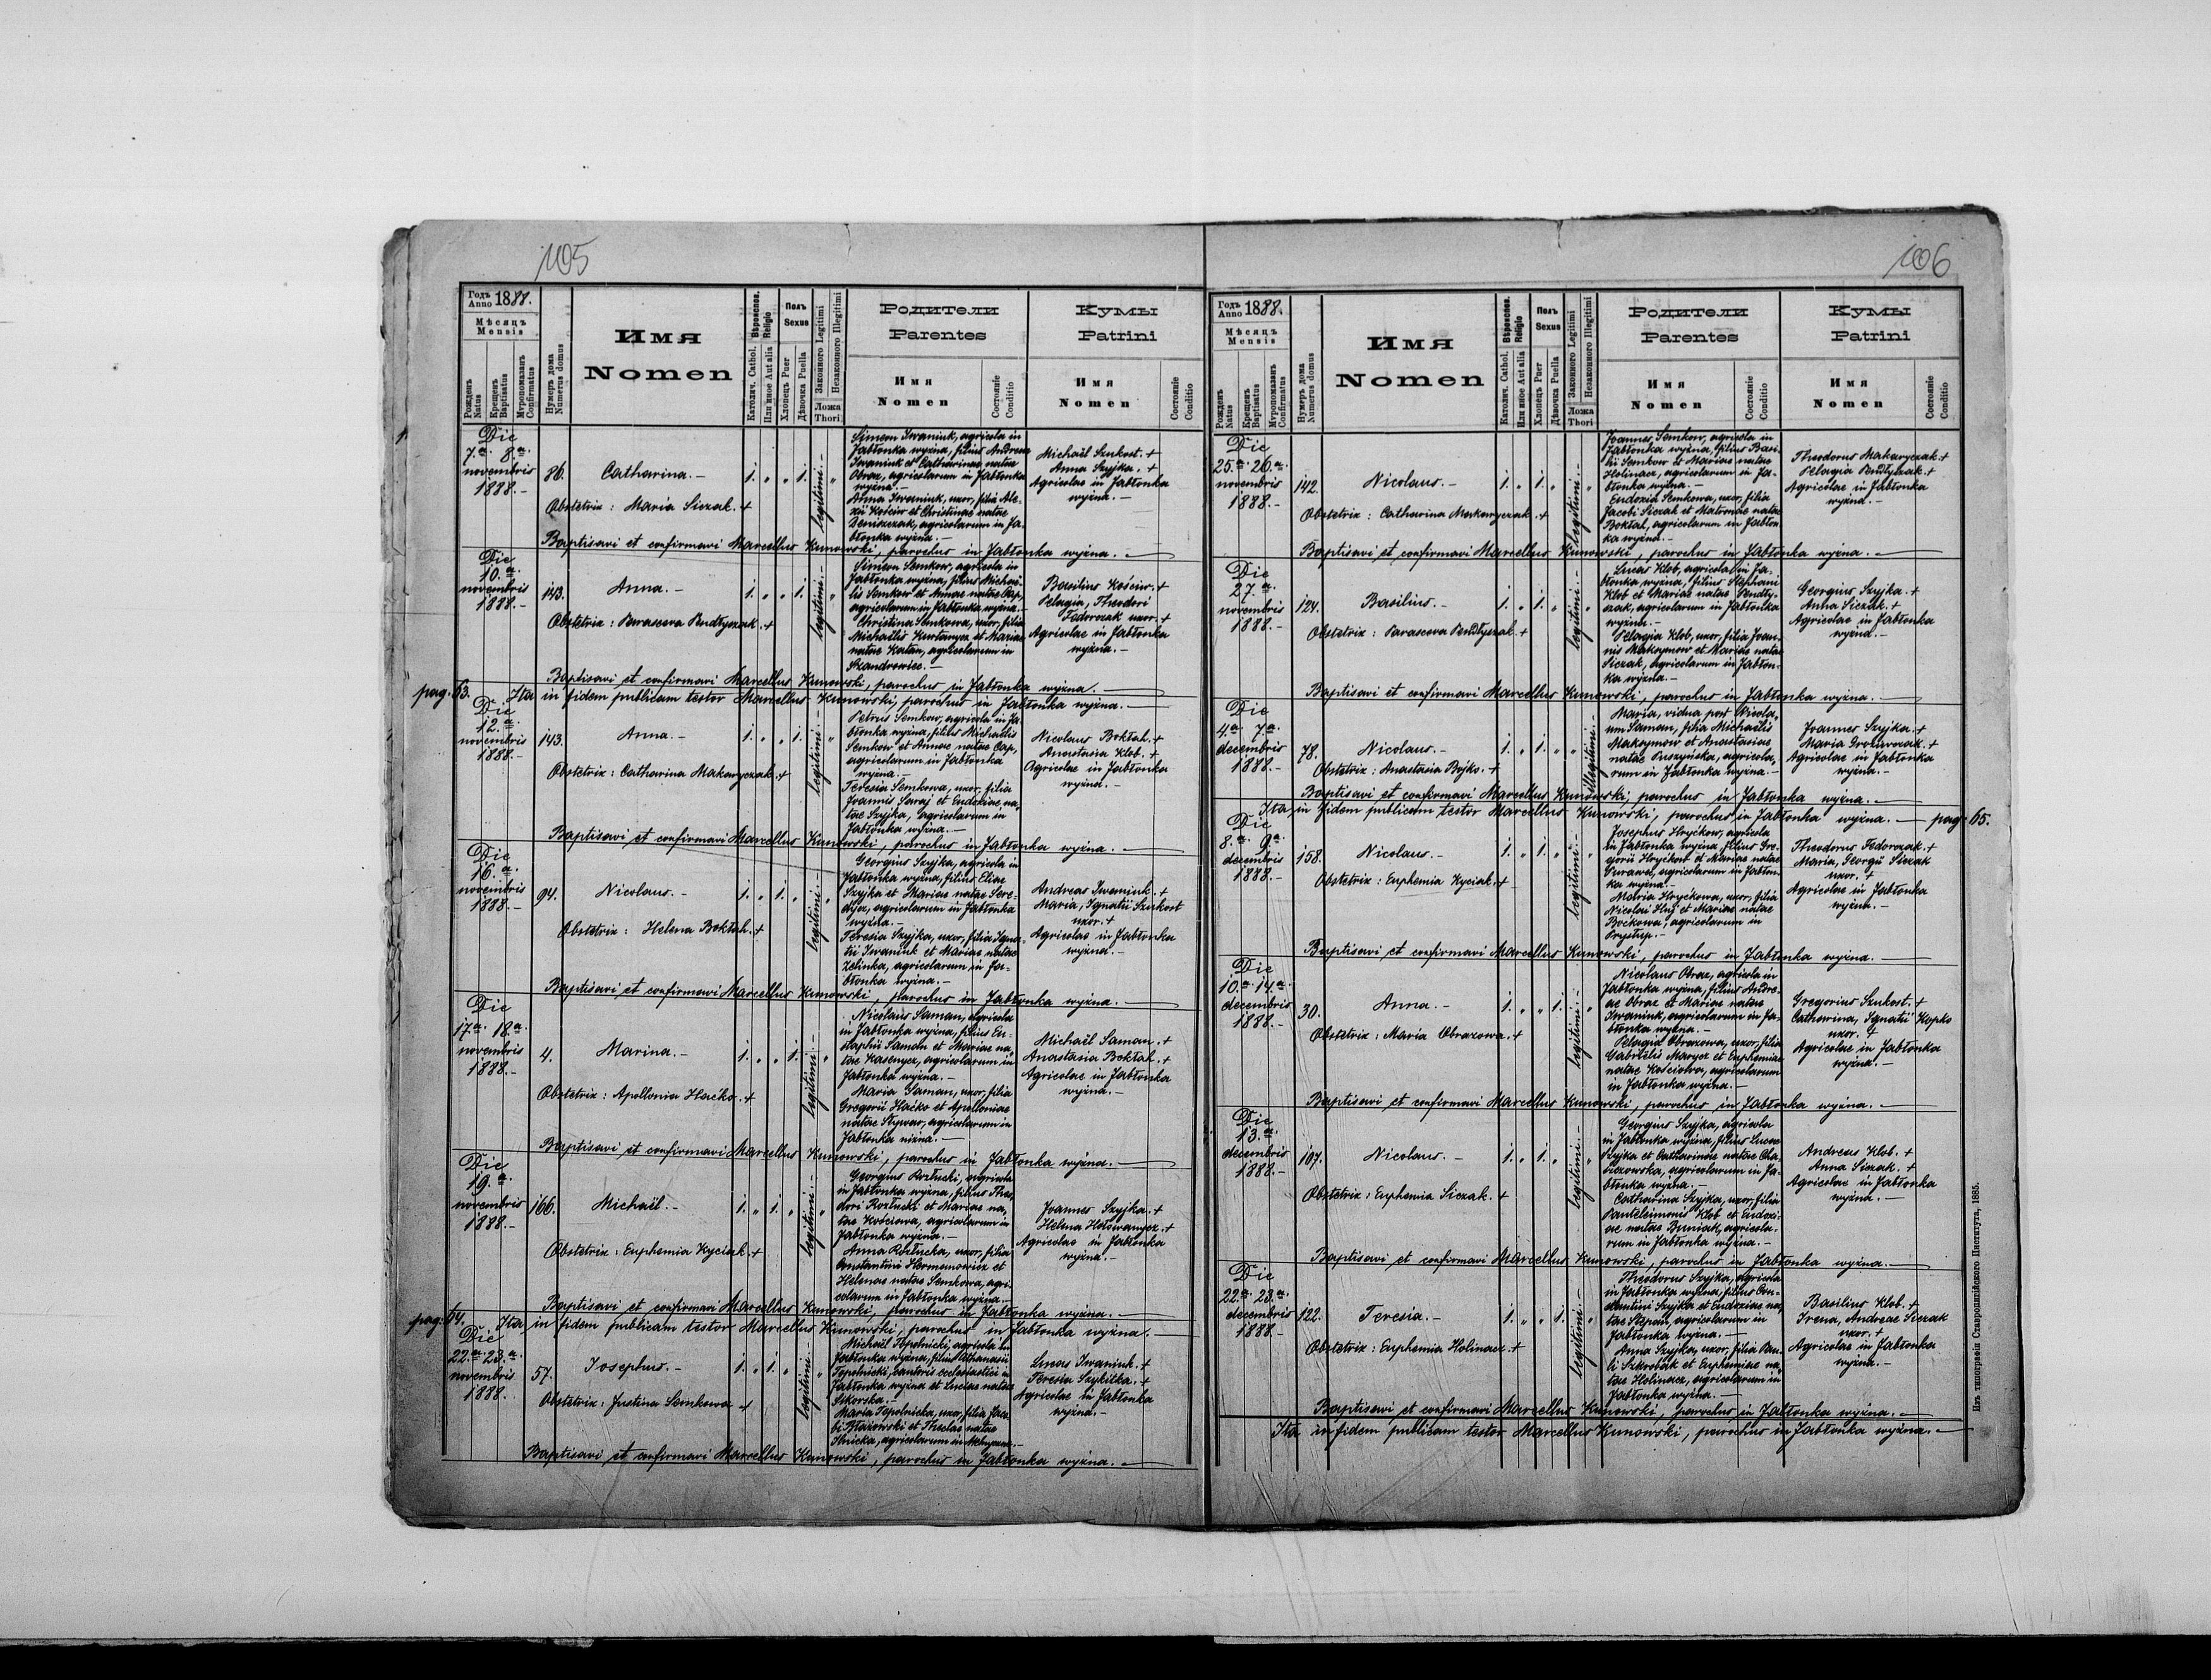 105
Годъ Anno 1888.
Мѣсяцъ Mensis
Рожденъ Natus
Крещенъ Baptisatus
Мѵропомазанъ Confirmatus
Нумеръ дома Numerus domus
Имя Nomen
Вѣроиспов. Religio
Католич. Cathol.
Или иное Aut alia
Полъ Sexus
Хлопецъ Puer
Дѣвочка Puella
Законного Legitimi
Незаконного Illegitimi
Ложа Thori
Родители Parentes
Имя Nomen
Состояніе Conditio
Кумы Patrini
Имя Nomen
Состояніе Conditio
Die
7.a 8.a
novembris
1888.-
86.
Catharina.-
1. " " 1.
legitimi.-
"
Obstetrix: Maria Siczak.+
Simeon Iwaniuk, agricola in
Jabłonka wyżna, filius Andreae
Iwaniuk et Catharinae natae
Obraz, agricolarum in Jabłonka
wyżna.-
Anna Iwaniuk, uxor, filia Ale-
xii Kościw et Christinae natae
Deniszczak, agricolarum in Ja-
błonka wyżna.-
Michaël Szukost.+
Anna Szyjka.+
Agricolae in Jabłonka
wyżna.-
Baptisavi et confirmavi Marcellus Kunowski, parochus in Jabłonka wyżna.-
Die
10.a
novembris
1888.-
143.
Anna.-
1. " " 1.
legitimi.-
"
Obstetrix: Parasceva Pendłyczak.+
Simeon Semkow, agricola in
Jabłonka wyżna, filius Michaë-
lis Semkow et Annae natae Cap,
agricolarum in Jabłonka wyżna.-
Christina Semkowa, uxor, filia
Michaëlis Kurtanycz et Mariae
natae Katan, agricolarum in
Skandrowiec.-
Basilius Kościw.+
Pelagia, Theodori
Fedorczak uxor.+
Agricolae in Jabłonka
wyżna.-
Baptisavi et confirmavi Marcellus Kunowski, parochus in Jabłonka wyżna.-
pag. 63. Ita in fidem publicam testor Marcellus Kunowski, parochus in Jabłonka wyżna.-
Die
12.a
novembris
1888.-
143.
Anna.-
1. " " 1.
legitimi.-
"
Obstetrix: Catharina Makaryczak.+
Petrus Semkow, agricola in Ja
błonka wyżna, filius Michaëlis
Semkow et Annae natae Cap,
agricolarum in Jabłonka
wyżna.-
Teresia Semkowa, uxor, filia
Joannis Saraj et Eudoxiae na-
tae Szyjka, agricolarum in
Jabłonka wyżna.-
Nicolaus Boktah.+
Anastasia Klob.+
Agricolae in Jabłonka
wyżna.-
Baptisavi et confirmavi Marcellus Kunowski, parochus in Jabłonka wyżna.-
Die
16.a
novembris
1888.-
94.
Nicolaus.-
1. " 1. "
legitimi.-
Obstetrix: Helena Boktah.+
Georgius Szyjka, agricola in
Jabłonka wyżna, filius Eliae
Szyjka et Mariae natae Sere-
dycz, agricolarum in Jabłonka
wyżna.-
Teresia Szyjka, uxor, filia Igna-
tii Iwaniuk et Mariae natae
Zelinka, agricolarum in Ja-
błonka wyżna.-
Andreas Iwaniuk.+
Maria, Ignatii Szukost
uxor.+
Agricolae in Jabłonka
wyżna.-
Baptisavi et confirmavi Marcellus Kunowski, parochus in Jabłonka wyżna.-
Die
17.a 18.a
novembris
1888.-
4.
Marina.-
1. " " 1.
legitimi.-
"
Obstetrix: Apollonia Haćko.+
Nicolaus Saman, agricola
in Jabłonka wyżna, filius Eu-
staphii Saman et Mariae na-
tae Kasenycz, agricolarum in
Jabłonka wyżna.-
Maria Saman, uxor, filia
Gregorii Haćko et Apolloniae
natae Stywar, agricolarum in
Jabłonka niżna.-
Michaël Saman.+
Anastasia Boktah.+
Agricolae in Jabłonka
wyżna.-
Baptisavi et confirmavi Marcellus Kunowski, parochus in Jabłonka wyżna.-
Die
19.a
novembris
1888.-
166.
Michaël.-
1. " 1. "
legitimi.-
"
Obstetrix: Euphemia Kyciak.+
Georgius Rozłucki, agricola
in Jabłonka wyżna, filius Theo-
dori Rozłucki et Mariae na-
tae Kościowa, agricolarum in
Jabłonka wyżna.-
Anna Rozłucka, uxor, filia
Constantini Hermanowicz et
Helenae natae Semkowa, agri-
colarum in Jabłonka wyżna.-
Joannes Szyjka.+
Helena Hołowanycz.+
Agricolae in Jabłonka
wyżna.-
Baptisavi et confirmavi Marcellus Kunowski, parochus in Jabłonka wyżna.-
pag: 64. Ita in fidem publicam testor Marcellus Kunowski, parochus in Jabłonka wyżna.-
Die
22.a 23.a
novembris
1888.
57.
Josephus.-
1. " 1. "
legitimi.-
"
Obstetrix: Justina Semkowa.+
Michaël Topolnicki, agricola in
Jabłonka wyżna, filius Athanasii
Topolnicki, cantoris ecclesiastici in
Jabłonka wyżna et Luciae natae
Sikorska.-
Maria Topolnicka, uxor, filia Jaco-
bi Błażowski et Theclae natae
Ilnicka, agricolarum in
Lucas Iwaniuk.+
Teresia Szykitka.+
Agricolae in Jabłonka
wyżna.-
Baptisavi et confirmavi Marcellus Kunowski, parochus in Jabłonka wyżna.-
106
Годъ Anno 1888.
Мѣсяцъ Mensis
Рожденъ Natus
Крещенъ Baptisatus
Мѵропомазанъ Confirmatus
Нумеръ дома Numerus domus
Имя Nomen
Вѣроиспов. Religio
Католич. Cathol.
Или иное Aut alia
Полъ Sexus
Хлопецъ Puer
Дѣвочка Puella
Законного Legitimi
Незаконного Illegitimi
Ложа Thori
Родители Parentes
Имя Nomen
Состояніе Conditio
Кумы Patrini
Имя Nomen
Состояніе Conditio
Die
25.a 26.a
novembris
1888.-
142.
Nicolaus.-
1. " 1. "
legitimi.-
"
Obstetrix: Catharina Makaryczak.+
Joannes Semkow, agricola in
Jabłonka wyżna, filius Basi-
lii Semkow et Mariae natae
Holinacz, agricolarum in Ja-
błonka wyżna.-
Eudoxia Semkowa, uxor, filia
Jacobi Siczak et Matronae natae
Boktah, agricolarum in Jabłon-
ka wyżna.-
Theodorus Makaryczak.+
Pelagia Pendłyczak.+
Agricolae in Jabłonka
wyżna.-
Baptisavi et confirmavi Marcellus Kunowski, parochus in Jabłonka wyżna.-
Die
27.a
novembris
1888.-
124.
Basilius.-
1. " 1. "
legitimi.-
"
Obstetrix: Parasceva Pendłyczak.+
Lucas Klob, agricola in Ja-
błonka wyżna, filius Stephani
Klob et Mariae natae Pendły-
czak, agricolarum in Jabłonka
wyżna.-
Pelagia Klob, uxor, filia Joan-
nis Maksymow et Mariae natae
Siczak, agricolarum in Jabłon-
ka wyżna.-
Georgius Szyjka.+
Anna Siczak.+
Agricolae in Jabłonka
wyżna.-
Baptisavi et confirmavi Marcellus Kunowski, parochus in Jabłonka wyżna.-
Die
4.a 7.a
decembris
1888.-
78.
Nicolaus.-
1. " 1. " "
illegitimi.-
Obstetrix: Anastasia Bojko.+
Maria, vidua post Nicola-
um Saman, filia Michaëlis
Maksymow et Anastasiae
natae Puszyńska, agricola-
rum in Jabłonka wyżna.-
Joannes Szyjka.+
Maria
Agricolae in Jabłonka
wyżna.-
Baptisavi et confirmavi Marcellus Kunowski, parochus in Jabłonka wyżna.-
Ita in fidem publicam testor Marcellus Kunowski, parochus in Jabłonka wyżna.- pag: 65.
Die
8.a 9.a
decembris
1888.-
158.
Nicolaus.-
1. " 1. "
legitimi.-
"
Obstetrix: Euphemia Kyciak.+
Josephus Hryćkow, agricola
in Jabłonka wyżna, filius Gre-
gorii Hryćkow et Mariae natae
Żurawel, agricolarum in Jabłon-
ka wyżna.-
Maria Hryćkowa, uxor, filia
Nicolai Huj et Mariae natae
Boćkowa, agricolarum in
Prystup.-
Theodorus Fedorczak.+
Maria, Georgii Siczak
uxor.+
Agricolae in Jabłonka
wyżna.-
Baptisavi et confirmavi Marcellus Kunowski, parochus in Jabłonka wyżna.-
Die
10.a 14.a
decembris
1888.-
30.
Anna.-
1. " " 1.
legitimi.-
"
Obstetrix: Maria Obrazowa.+
Nicolaus Obraz, agricola in
Jabłonka wyżna, filius Andre-
ae Obraz et Mariae natae
Iwaniuk, agricolarum in Ja-
błonka wyżna.-
Pelagia Obrazowa, uxor, filia
Gabriëlis Marycz et Euphemiae
natae Kościowa, agricolarum
in Jabłonka wyżna.-
Gregorius Szukost.+
Catharina, Ignatii Kopko
uxor.+
Agricolae in Jabłonka
wyżna.-
Baptisavi et confirmavi Marcellus Kunowski, parochus in Jabłonka wyżna.-
Die
13.a
decembris
1888.-
107.
Nicolaus.-
1. " 1. "
legitimi.-
"
Obstetrix: Euphemia Siczak.+
Georgius Szyjka, agricola
in Jabłonka wyżna, filius Lucae
Szyjka et Catharinae natae Cha-
szczowska, agricolarum in Ja-
błonka wyżna.-
Catharina Szyjka, uxor, filia
Panteleimonis Klob et Eudoxi-
ae natae Buniak, agricola-
rum in Jabłonka wyżna.-
Andreas Klob.+
Anna Siczak.+
Agricolae in Jabłonka
wyżna.-
Baptisavi et confirmavi Marcellus Kunowski, parochus in Jabłonka wyżna.-
Die
22.a 23.a
decembris
1888.-
122.
Teresia.-
1. " " 1.
legitimi.-
"
Obstetrix: Euphemia Holinacz.+
Theodorus Szyjka, agricola
in Jabłonka wyżna, filius Con-
stantini Szyjka et Eudoxiae na-
tae Stepan, agricolarum in
Jabłonka wyżna.-
Anna Szyjka, uxor, filia Pau-
li Szkrobak et Euphemiae na-
tae Holinacz, agricolarum in
Jabłonka wyżna.-
Basilius Klob.+
Irena, Andreae Siczak
uxor.+
Agricolae in Jabłonka
wyżna.-
Baptisavi et confirmavi Marcellus Kunowski, parochus in Jabłonka wyżna.-
Ita in fidem publicam testor Marcellus Kunowski, parochus in Jabłonka wyżna.-
Изъ типографіи Ставропигійского Института, 1885.